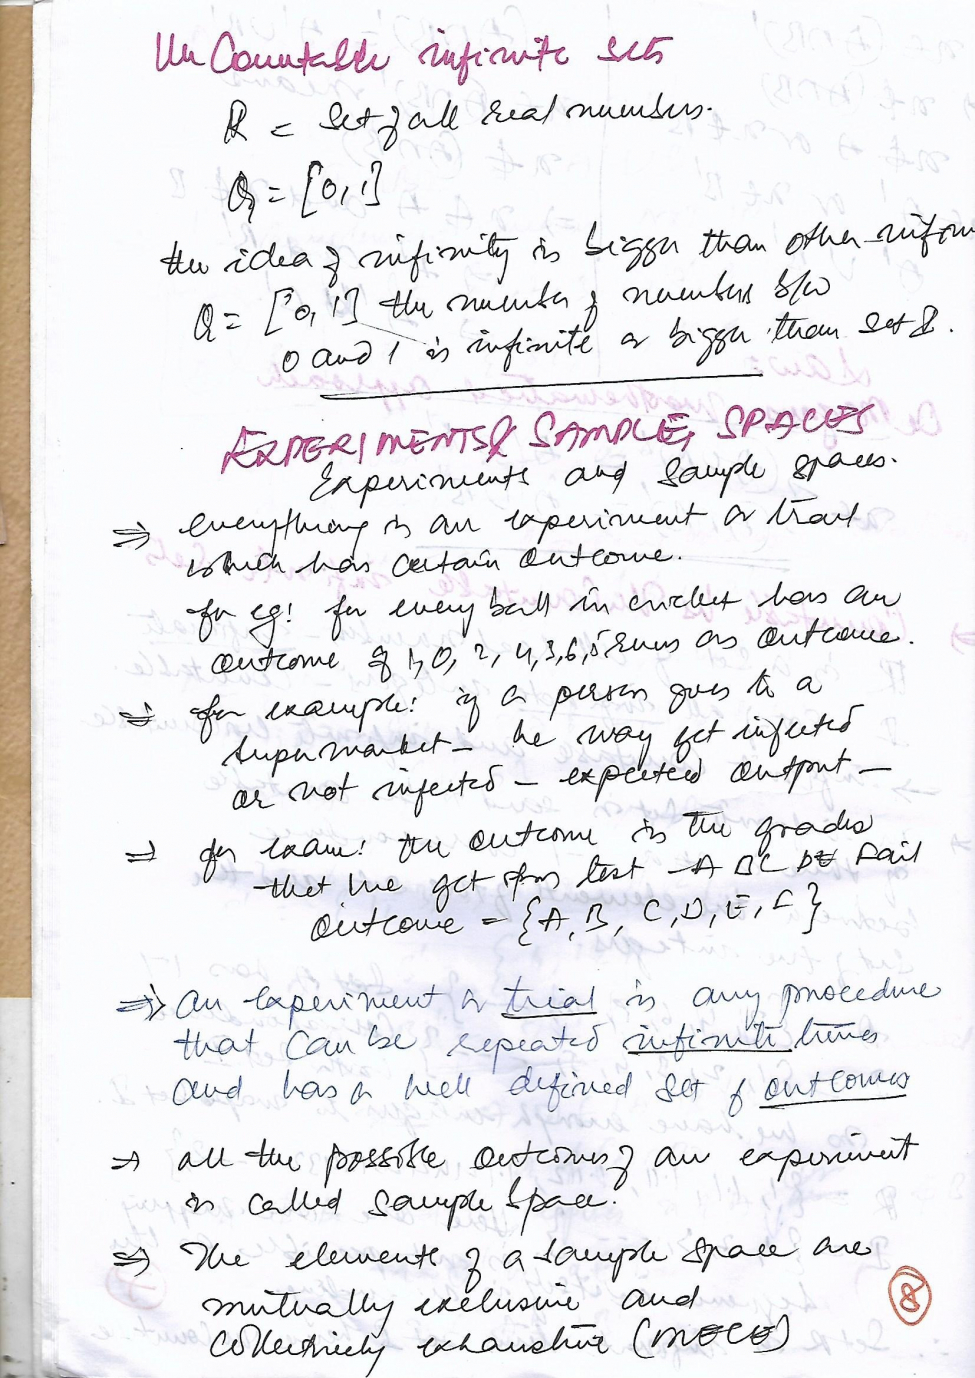 Un Countable infinite sets
R = Set of all real numbers.
Q = [0, 1]
the idea of infinity is bigger than other infini
Q = [0, 1] the number of numbers b/w
0 and 1 is infinite or bigger than set
EXPERIMENTS & SAMPLE SPACES
Experiments and Sample spaces.
⇒ everything is an experiment or trail
which has certain outcome.
for eg: for every ball in cricket has an
outcome of 1, 0, 2, 4, 3, 6, 5 runs as outcome.
⇒ for example: if a person goes to a
supermarket – he may get infected
or not infected – expected output –
⇒ for exam: the outcome is the grades
that we get from test A B C D E Fail
outcome = {A, B, C, D, E, F}
⇒ an experiment or trial is any procedure
that can be repeated infinite times
and has a well defined set of outcomes
⇒ all the possible outcomes of an experiment
is called sample space.
⇒ The elements of a sample space are
mutually exclusive and
collectively exhaustive (MECE)
8